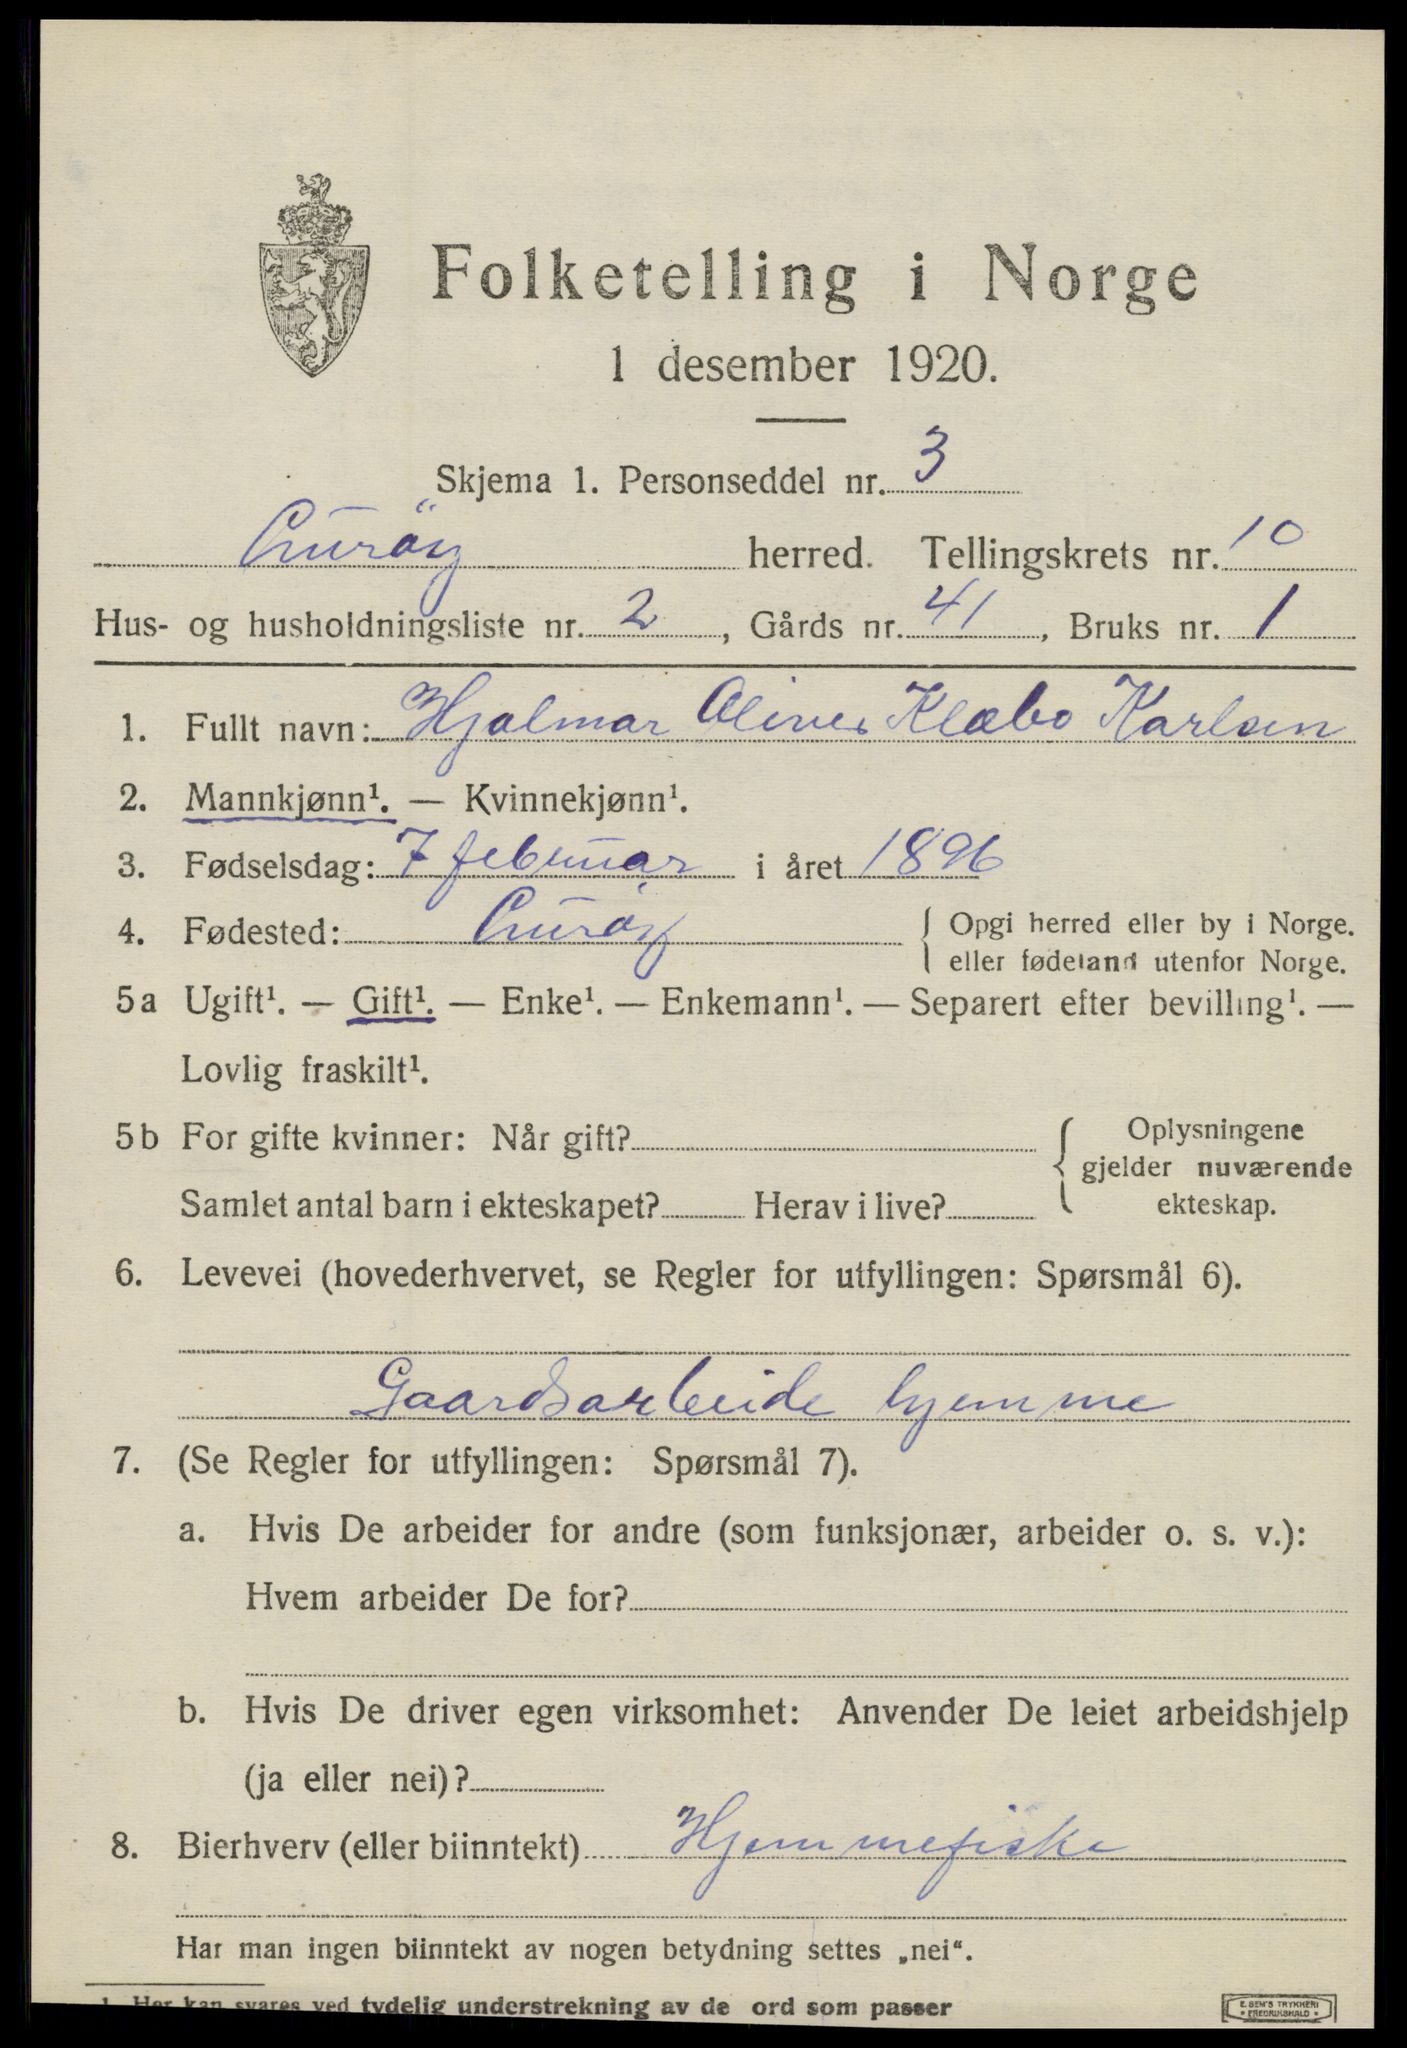 Folketelling i Norge
1 desember 1920.
Skjema 1. Personseddel nr. 3
Lurøy herred. Tellingskrets nr. 10
Hus- og husholdningsliste nr. 2, Gårds nr. 41, Bruks nr. 1
1. Fullt navn: Hjalmar Oliver Klæbo Karlsen
2. Mannkjønn¹. — Kvinnekjønn¹.
3. Fødselsdag: 7 februar i året 1896
4. Fødested: Lurøy { Opgi herred eller by i Norge.
eller fødeland utenfor Norge.
5a Ugift¹. — Gift¹. — Enke¹. — Enkemann¹. — Separert efter bevilling¹. —
Lovlig fraskilt¹.
5b For gifte kvinner: Når gift?
Samlet antal barn i ekteskapet? Herav i live?
{ Oplysningene
gjelder nuværende
ekteskap.
6. Levevei (hovederhvervet, se Regler for utfyllingen: Spørsmål 6).
Gaardsarbeide hjemme
7. (Se Regler for utfyllingen: Spørsmål 7).
a. Hvis De arbeider for andre (som funksjonær, arbeider o. s. v.):
Hvem arbeider De for?
b. Hvis De driver egen virksomhet: Anvender De leiet arbeidshjelp
(ja eller nei)?
8. Bierhverv (eller biinntekt) Hjemmefiske
Har man ingen biinntekt av nogen betydning settes „nei“.
1. Her kan svares ved tydelig understrekning av de ord som passer
E. SEM'S TRYKKERI
• FREDRIKSHALD •